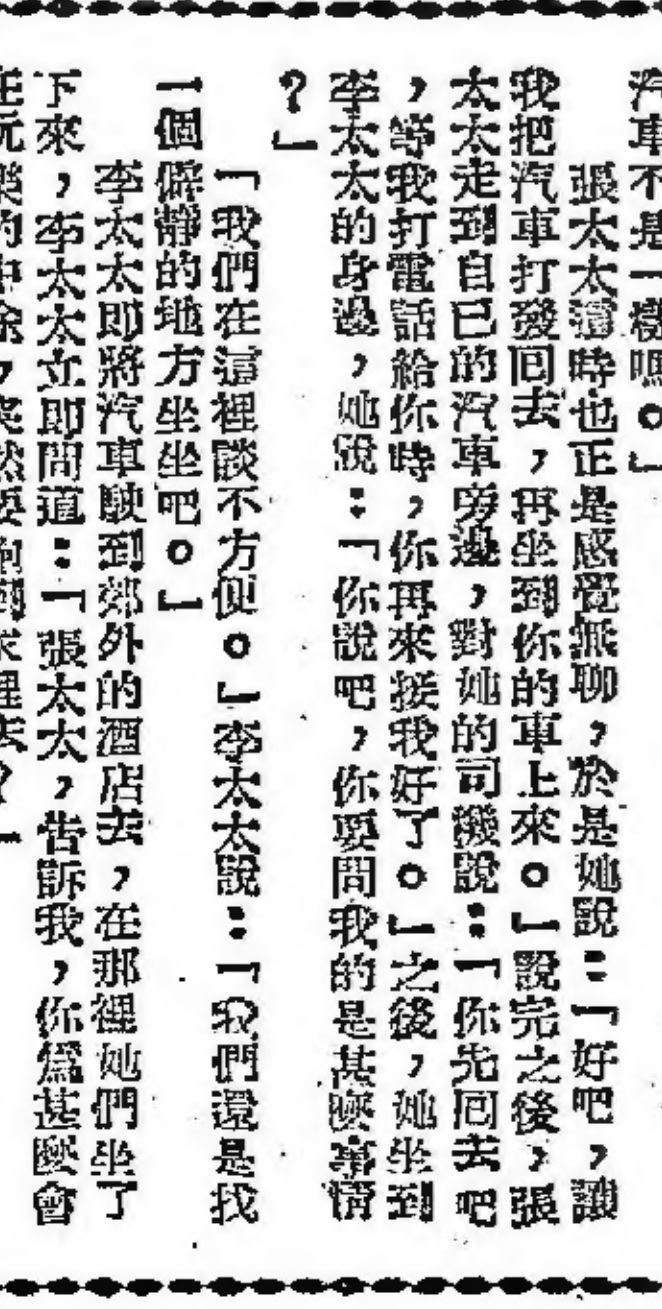 汽車不是一樣嗎。」
張太太這時也正是感覺無聊，於是她說：「好吧，讓
我把汽車打發回去，再坐到你的車上來。」說完之後，張
太太走到自已的汽車旁邊，對她的司機說：「你先回去吧
，等我打電話給你時，你再來接我好了。」之後，她坐到
李太太的身邊，她說：「你說吧，你要問我的是甚麼事情
？」
「我們在這裡談不方便。」李太太說：「我們還是找
一個僻靜的地方坐坐吧。」
李太太即將汽車駛到郊外的酒店去，在那裡她們坐了
下來，李太太立即問道：「張太太，告訴我，你爲甚麼會
在玩樂的中途，突然要跑到家裡去？」